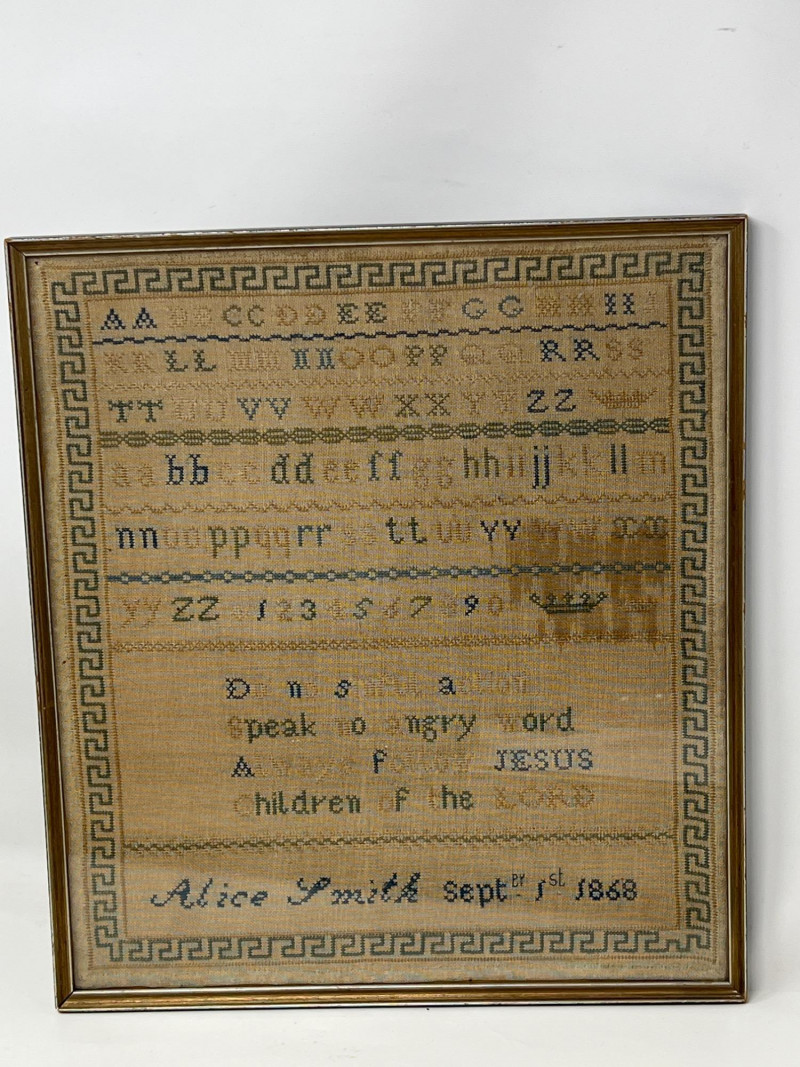 AA BB CC DD EE FF GG HH II
KK LL MM NN OO PP QQ RR SS
TT UU VV WW XX YY ZZ
aa bb cc dd ee ff gg hh ii jj kk ll m
nn oo pp qq rr ss tt uu vv ww xx
yy ZZ 1 2 3 4 5 6 7 8 9 0
Do no sinful action
Speak no angry word
Always follow JESUS
Children of the LORD
Alice Smith Septer 1st 1868